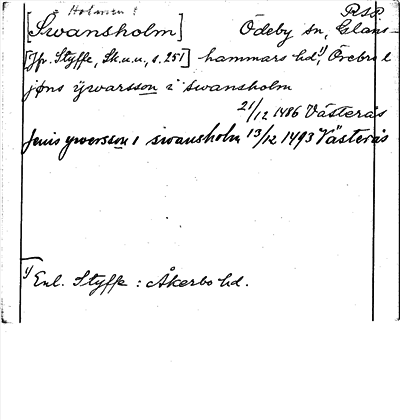 = Holmen !
RSP
[Swansholm] Ödeby sn, Glans-
[Jfr. Styffe, Sk.u.u., s. 251] hammars hd,¹⁾ Örebro l
jøns ÿwarsson i swansholm
21/12 1486 Västerås
Jenis ywersson i swansholm 13/12 1493 Västerås
¹⁾ Enl. Styffe : Åkerbo hd.